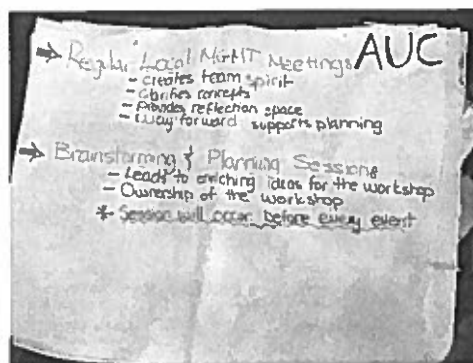 → Regular Local MirMT Meetings AUC
- creates team spirit
- clarifies concepts
- Provides reflection space
- Way forward supports planning
→ Brainstorming & Planning Sessions
- Leads to enriching ideas for the workshop
- Ownership of the workshop
* Session will occur before every event